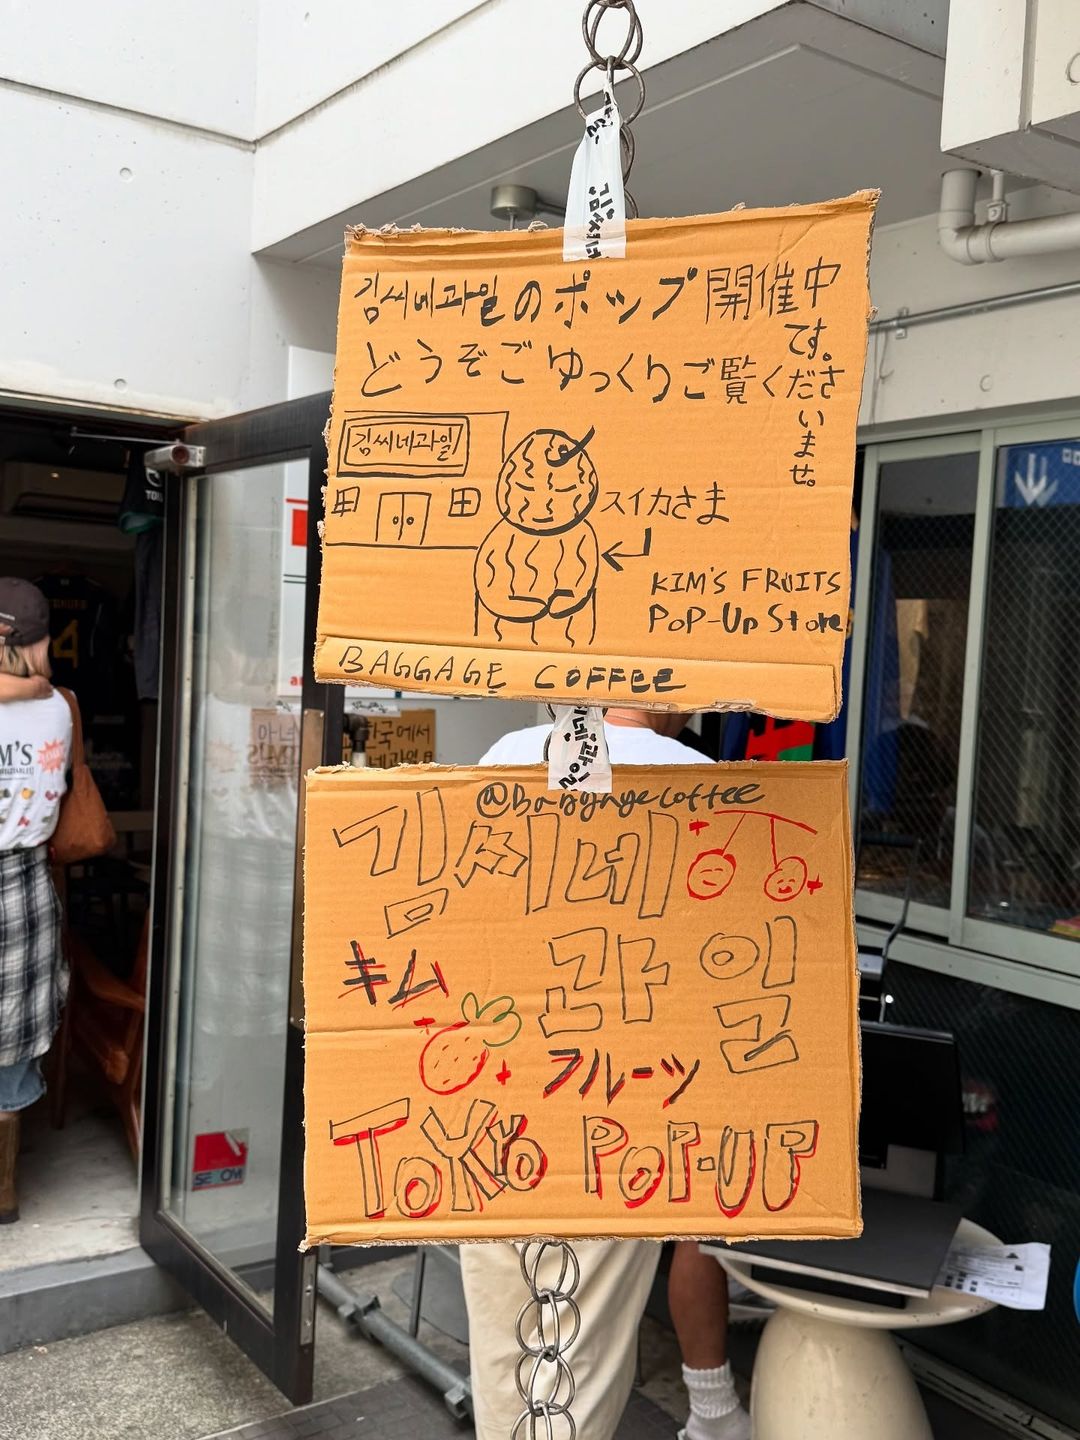 김씨네
김씨네과일のポップ開催中
です。
どうぞごゆっくりご覧ください
ませ。
김씨네과일
スイカさま
KIM'S FRUITS
POP-UP Store
BAGGAGE COFFEE
씨네과일
@Baggagecoffee
김씨네
キム
과일
フルーツ
TOKYO POP-UP
한국에서
M'S